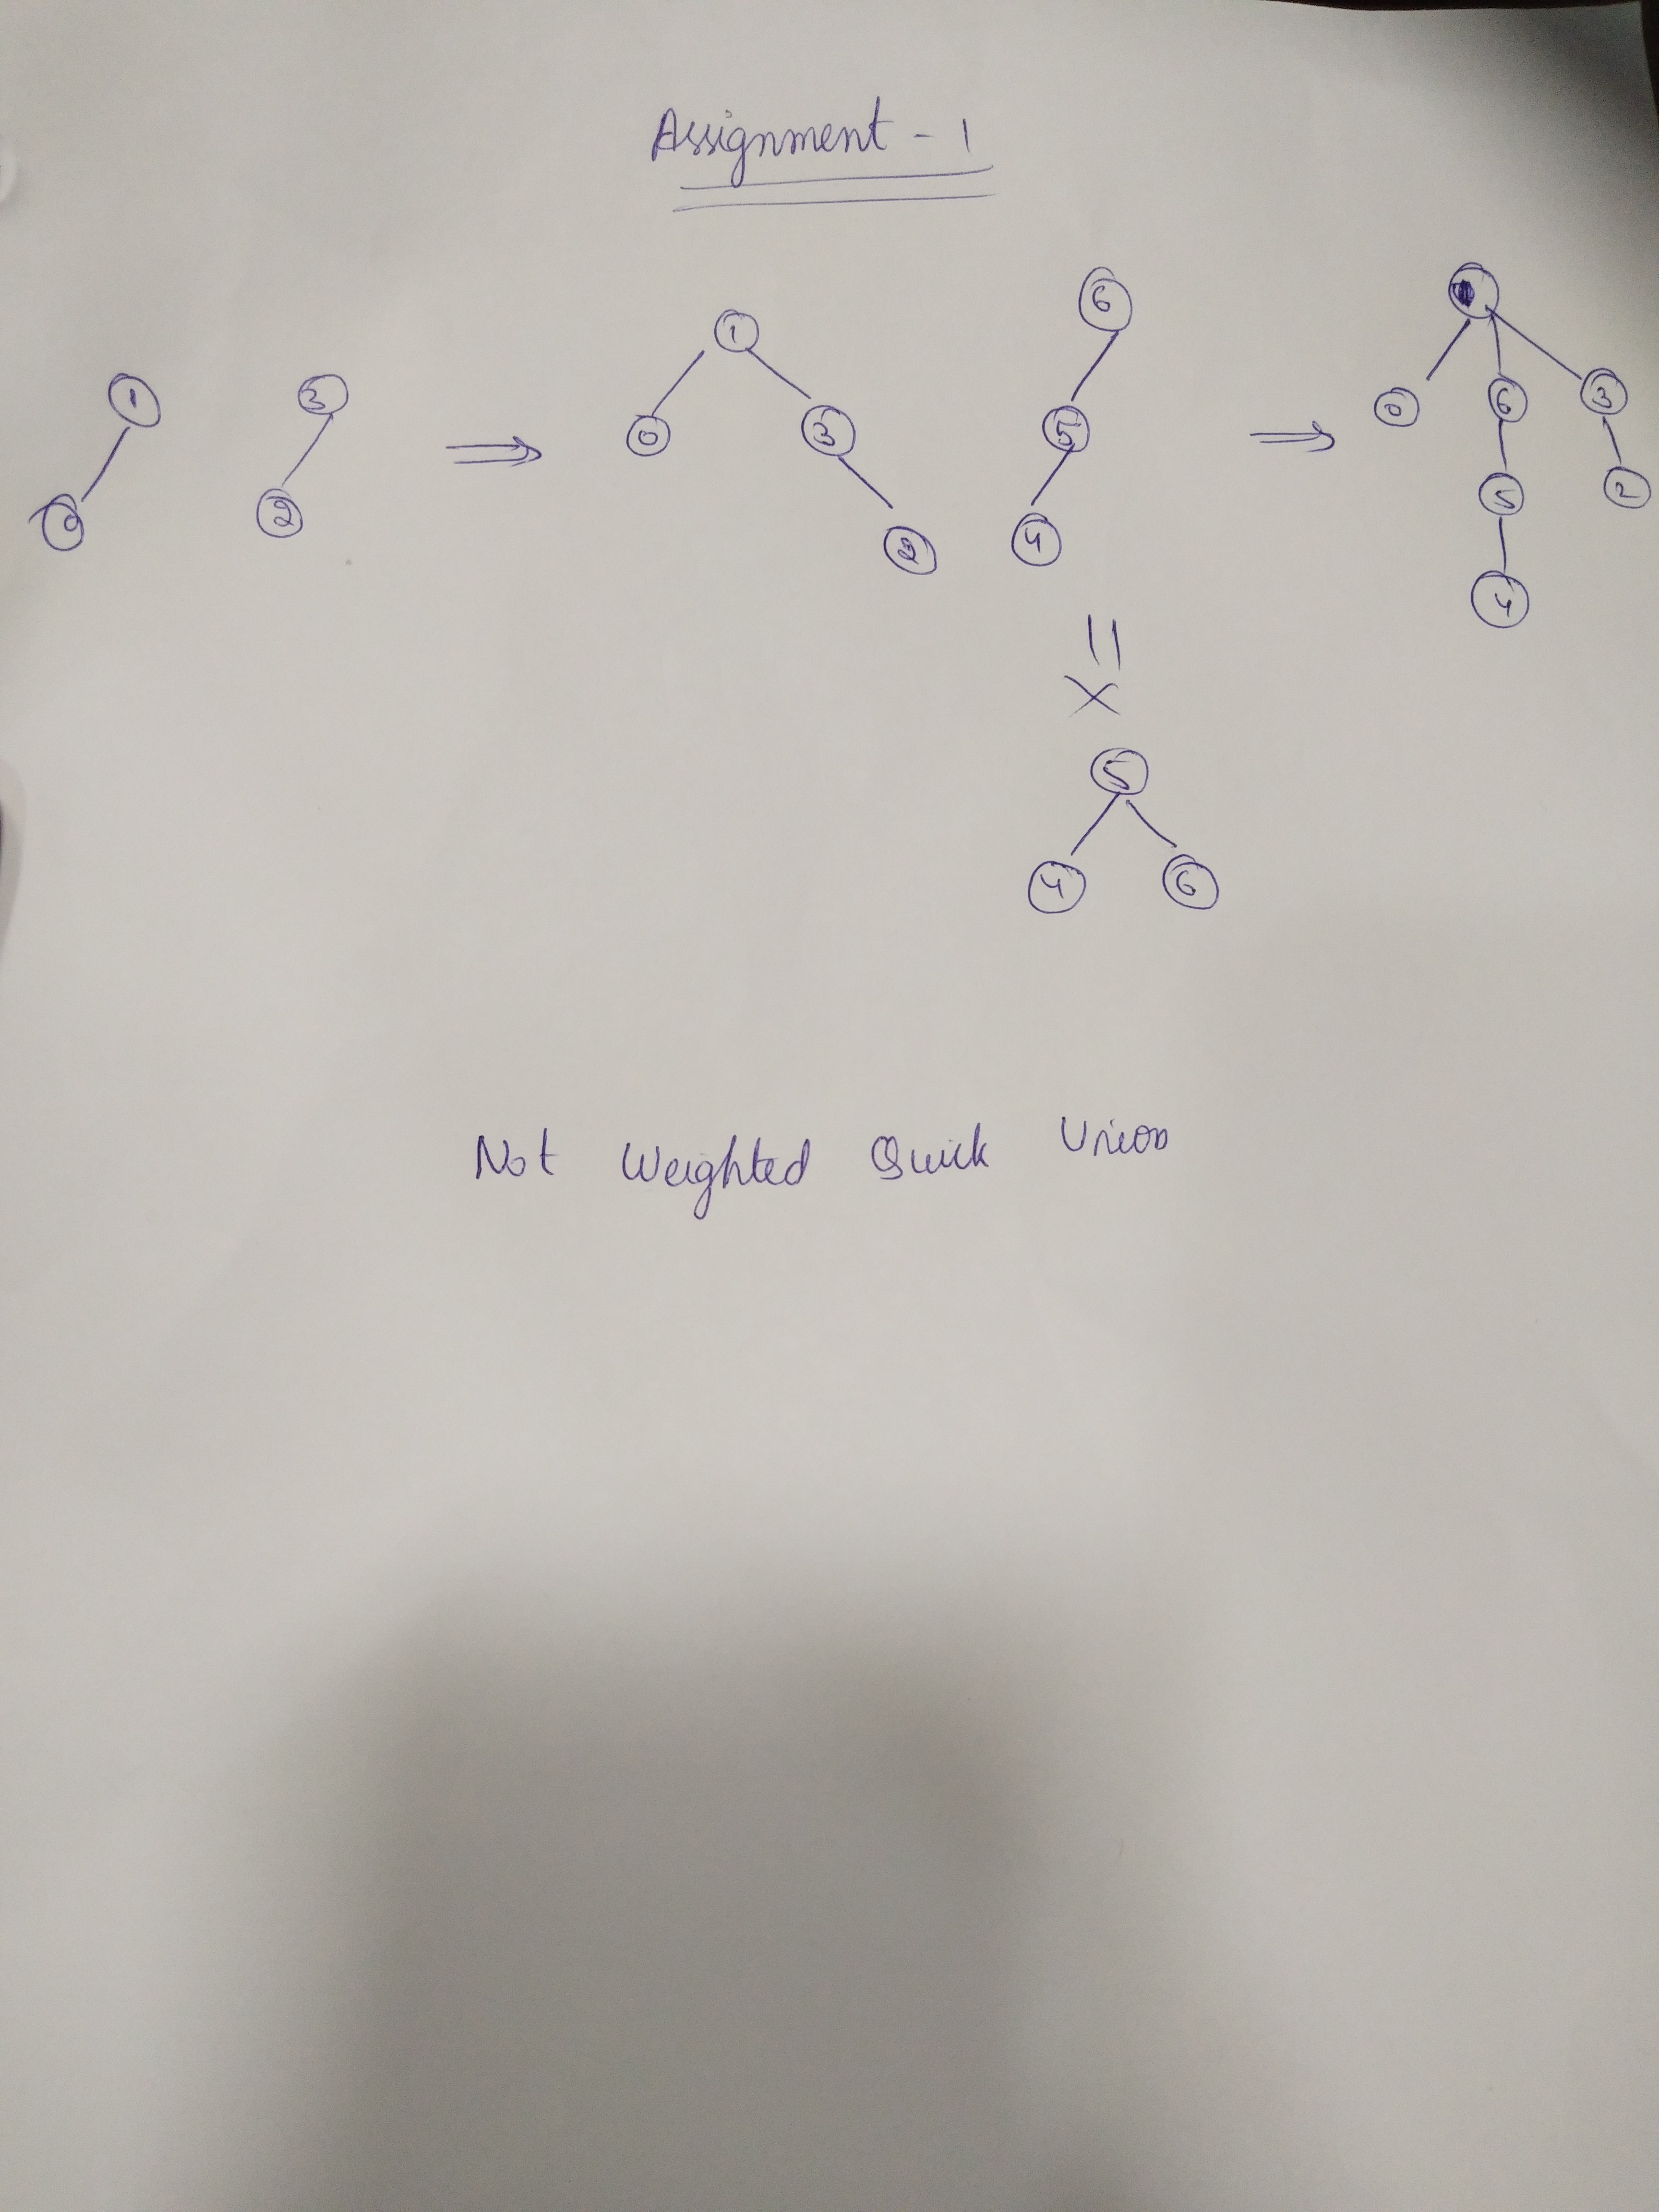 Assignment - 1
1 3 0 2
1 0 3 2
6 5 4
0 6 3 5 2 4
5 4 6
Not Weighted Quick Union